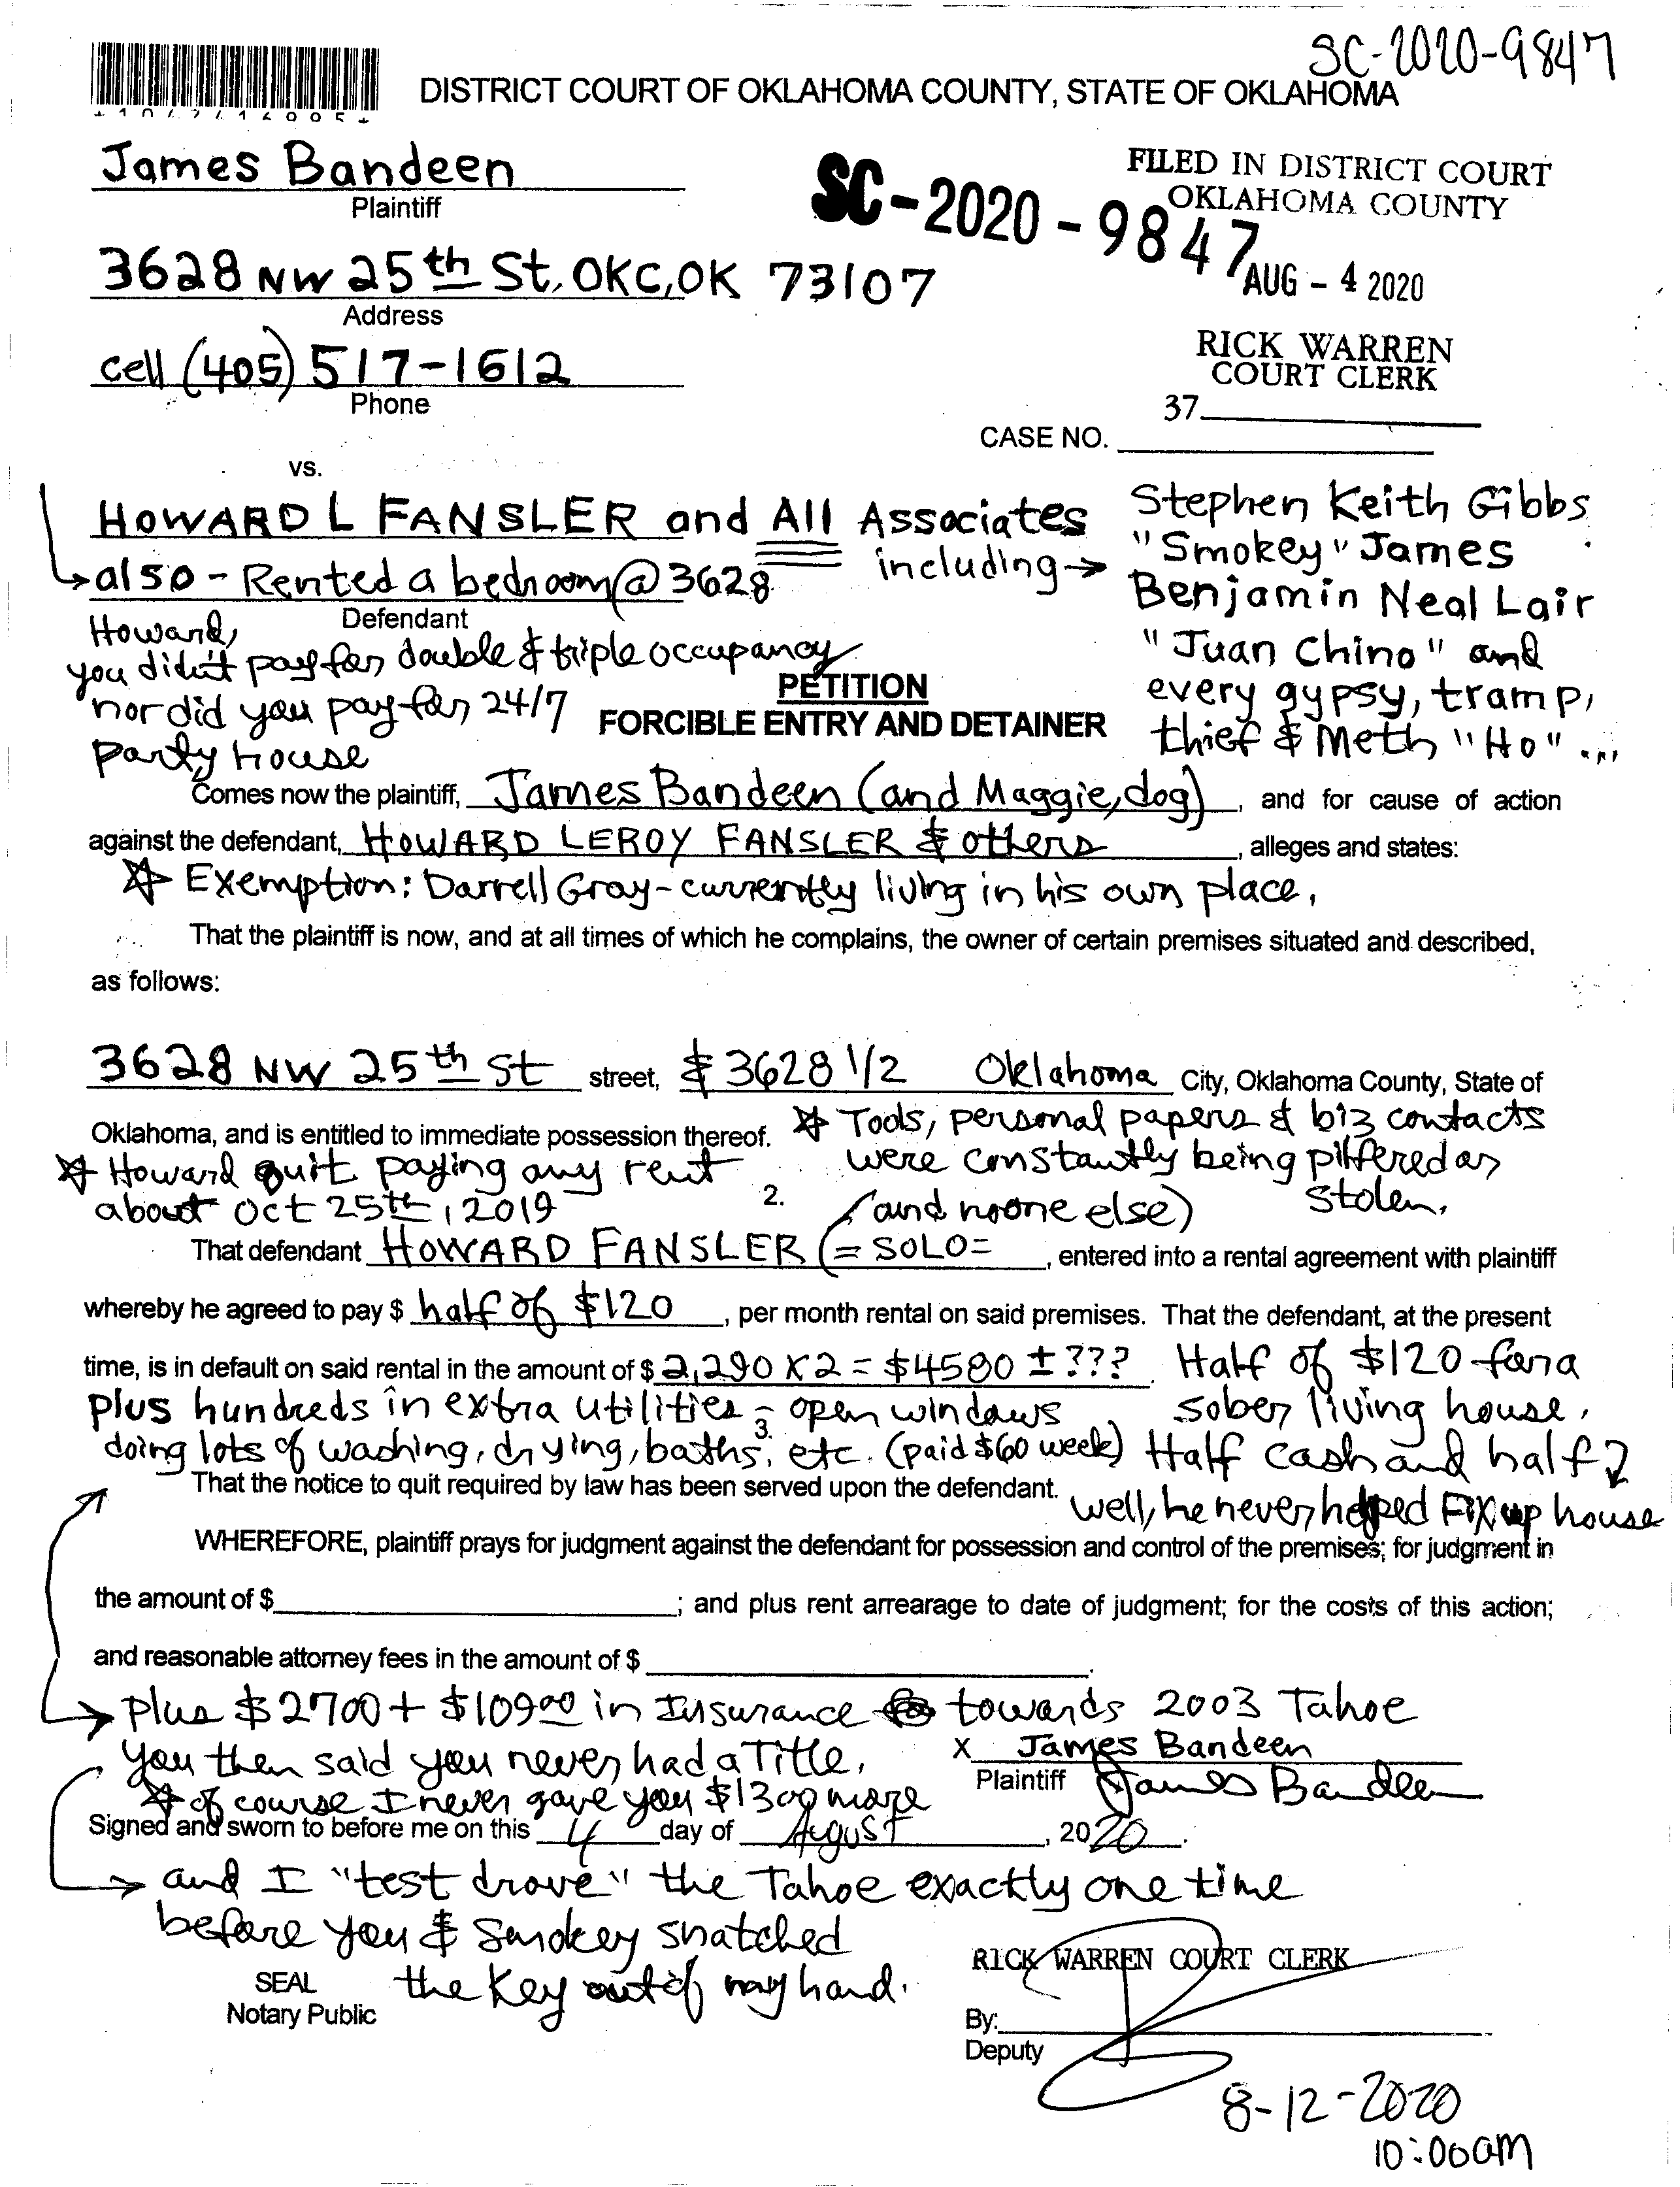 SC-2020-9847
DISTRICT COURT OF OKLAHOMA COUNTY, STATE OF OKLAHOMA
James Bandeen
Plaintiff
FILED IN DISTRICT COURT
OKLAHOMA COUNTY
SC-2020-9847
AUG - 4 2020
3628 NW 25th St, OKC, OK 73107
Address
RICK WARREN
COURT CLERK
cell (405) 517-1612
Phone
37
CASE NO.
vs.
HOWARD L FANSLER and All Associates
including →
Stephen Keith Gibbs
"Smokey" James
Benjamin Neal Lair
"Juan Chino" and
every gypsy, tramp,
thief & Meth "Ho"...
also - Rented a bedroom @ 3628
Defendant
Howard,
you didn't pay for double & triple occupancy
nor did you pay for 24/7
party House
PETITION
FORCIBLE ENTRY AND DETAINER
Comes now the plaintiff, James Bandeen (and Maggie, dog), and for cause of action
against the defendant, HOWARD LEROY FANSLER & others, alleges and states:
☆ Exemption: Darrell Gray - currently living in his own place.
That the plaintiff is now, and at all times of which he complains, the owner of certain premises situated and described,
as follows:
3628 NW 25th St street, & 3628 1/2 Oklahoma City, Oklahoma County, State of
Oklahoma, and is entitled to immediate possession thereof.
☆ Tools, personal papers & biz contacts
were constantly being pilfered or
stolen.
☆ Howard quit paying any rent
about Oct 25th, 2019
2.
(and noone else)
That defendant HOWARD FANSLER (=SOLO=, entered into a rental agreement with plaintiff
whereby he agreed to pay $ half of $120, per month rental on said premises. That the defendant, at the present
time, is in default on said rental in the amount of $ 2,290 x 2 = $4580 ± ???.
Half of $120 for a
sober living house.
Half cash and half
well, he never helped Fix up house
plus hundreds in extra utilities - open windows
3.
doing lots of washing, drying, baths, etc. (paid $60 week)
That the notice to quit required by law has been served upon the defendant.
WHEREFORE, plaintiff prays for judgment against the defendant for possession and control of the premises; for judgment in
the amount of $; and plus rent arrearage to date of judgment; for the costs of this action;
and reasonable attorney fees in the amount of $.
→ plus $2700 + $109.00 in Insurance towards 2003 Tahoe
you then said you never had a Title.
☆ of course I never gave you $1300 more
X James Bandeen
Plaintiff James Bandeen
Signed and sworn to before me on this 4 day of August, 2020.
→ and I "test drove" the Tahoe exactly one time
before you & Smokey snatched
the Key out of my hand.
SEAL
Notary Public
RICK WARREN COURT CLERK
By:
Deputy
8-12-2020
10:00am